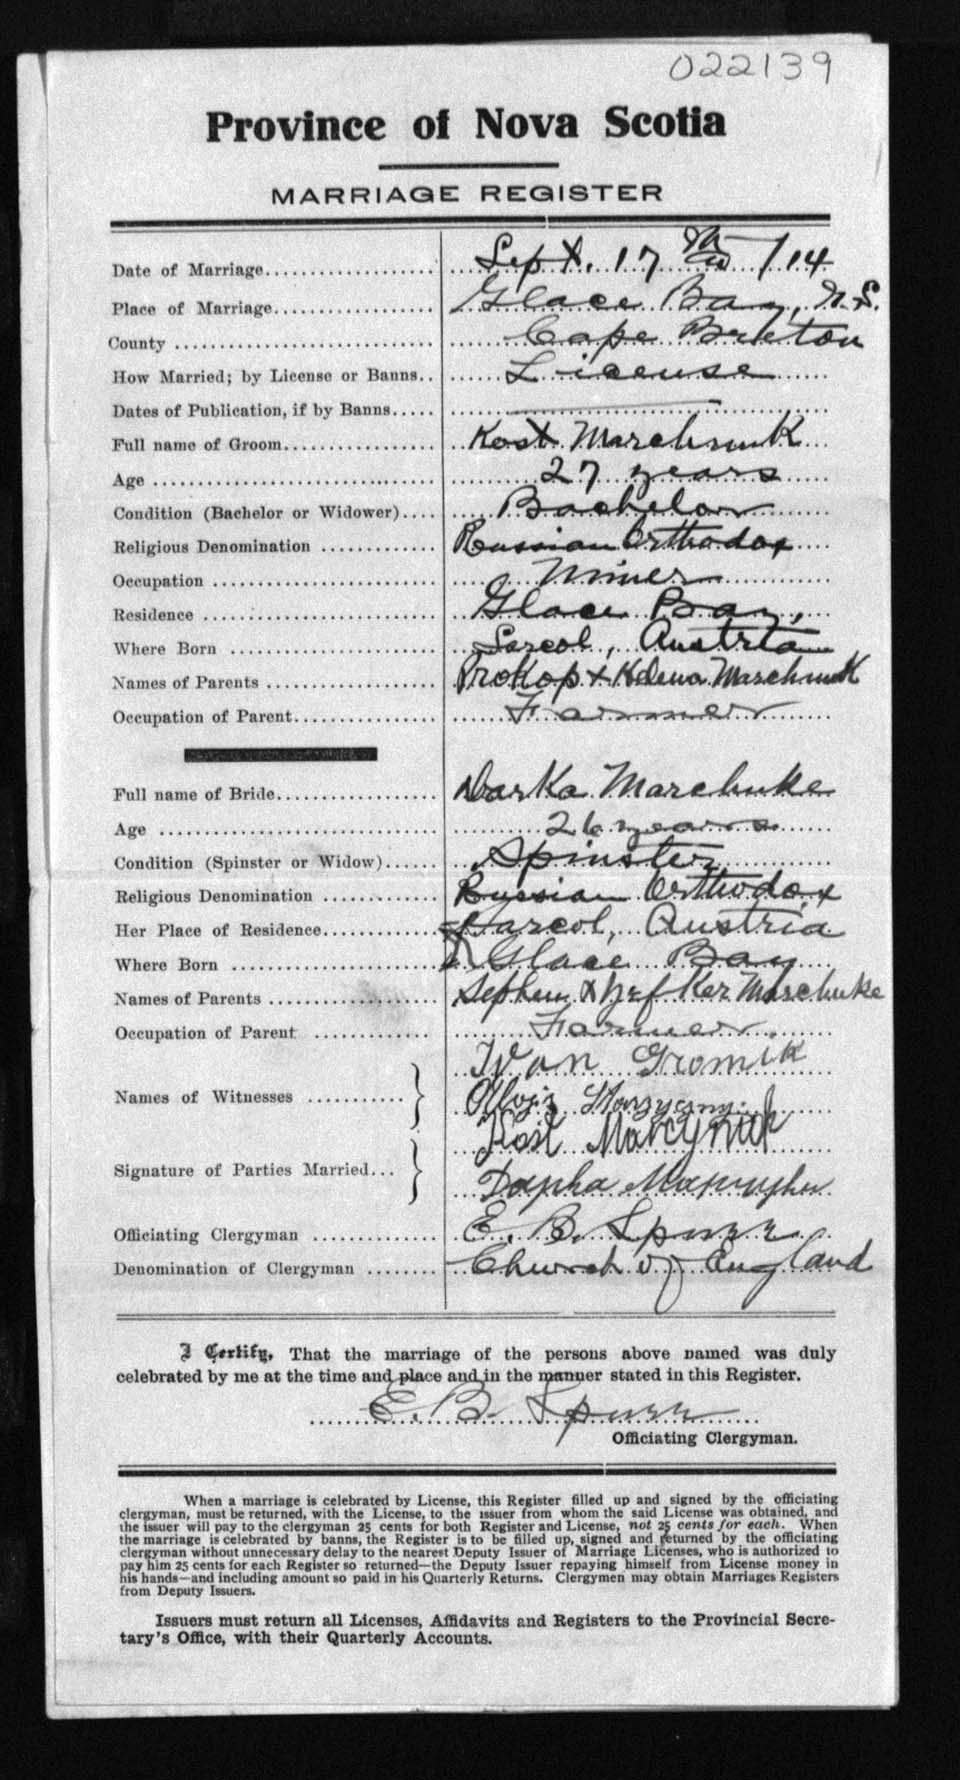 022139
Province of Nova Scotia
MARRIAGE REGISTER
Date of Marriage Sept. 17 th /14
Place of Marriage Glace Bay, N.S.
County Cape Breton
How Married; by License or Banns License
Dates of Publication, if by Banns
Full name of Groom Kost Marchuk
Age 27 years
Condition (Bachelor or Widower) Bachelor
Religious Denomination Russian Orthodox
Occupation Miner
Residence Glace Bay,
Where Born Austria
Names of Parents Prokop + Marchuk
Occupation of Parent Farmer
Full name of Bride Darka Marchuke
Age 26 years
Condition (Spinster or Widow) Spinster
Religious Denomination Russian Orthodox
Her Place of Residence Austria
Where Born Glace Bay
Names of Parents Marchuke
Occupation of Parent Farmer
Names of Witnesses Ivan Gromik
Signature of Parties Married
Officiating Clergyman E. B. Spurr
Denomination of Clergyman Church of England
I Certify, That the marriage of the persons above named was duly
celebrated by me at the time and place and in the manner stated in this Register.
E. B. Spurr
Officiating Clergyman.
When a marriage is celebrated by License, this Register filled up and signed by the officiating
clergyman, must be returned, with the License, to the issuer from whom the said License was obtained, and
the issuer will pay to the clergyman 25 cents for both Register and License, not 25 cents for each. When
the marriage is celebrated by banns, the Register is to be filled up, signed and returned by the officiating
clergyman without unnecessary delay to the nearest Deputy Issuer of Marriage Licenses, who is authorized to
pay him 25 cents for each Register so returned—the Deputy Issuer repaying himself from License money in
his hands—and including amount so paid in his Quarterly Returns. Clergymen may obtain Marriages Registers
from Deputy Issuers.
Issuers must return all Licenses, Affidavits and Registers to the Provincial Secre-
tary's Office, with their Quarterly Accounts.